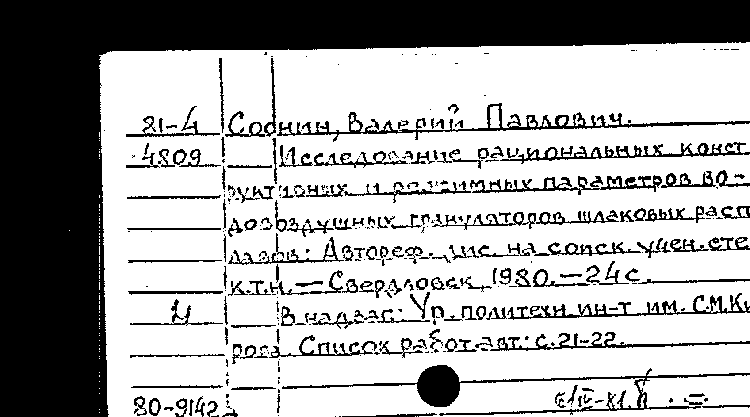 81-4 Соснин, Валерий Павлович.
4809 Исследование рациональных конст
руктивных и режимных параметров во-
довоздушных грануляторов шлаковых расп
лавов: Автореф. дис. на соиск. учен. сте
к.т.н. — Свердловск, 1980. — 24 с.
В надзаг: Ур. политехн ин-т им. С.М.Ки
рова. Список работ авт: с. 21-22.
80-9142